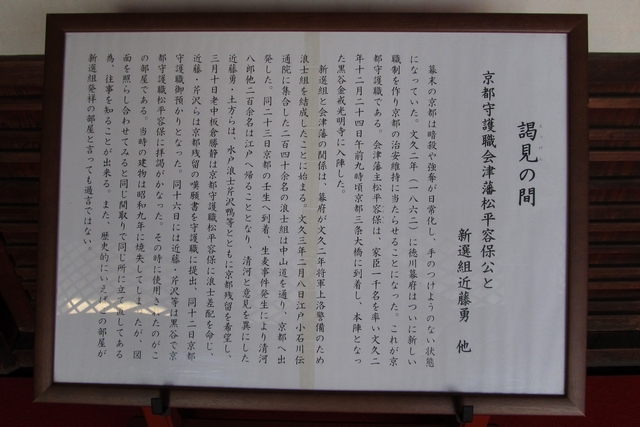 謁見の間
えっけん
京都守護職会津藩松平容保公と
新選組近藤勇 他
幕末の京都は暗殺や強奪が日常化し、手のつけようのない状態
になっていた。文久二年(一八六二)に徳川幕府はついに新しい
職制を作り京都の治安維持に当たらせることになった。これが京
都守護職である。会津藩主松平容保は、家臣一千名を率い文久二
年十二月二十四日午前九時頃京都三条大橋に到着し、本陣となっ
た黒谷金戒光明寺に入陣した。
新選組と会津藩の関係は、幕府が文久二年将軍上洛警備のため
浪士組を結成したことに始まる。文久三年二月八日江戸小石川伝
通院に集合した二百四十余名の浪士組は中山道を通り、京都へ出
発した。同二十三日京都の壬生へ到着、生麦事件発生により清河
八郎他二百余名は江戸へ帰ることとなり、清河と意見を異にした
近藤勇・土方らは、水戸浪士芹沢鴨等とともに京都残留を希望し、
三月十日老中板倉勝静は京都守護職松平容保に浪士差配を命じ、
近藤・芹沢らは京都残留の嘆願書を守護職に提出、同十二日京都
守護職御預かりとなった。同十六日には近藤・芹沢等は黒谷で京
都守護職松平容保に拝謁がかなった。その時に使用されたのがこ
の部屋である。当時の建物は昭和九年に焼失してしまったが、図
面を照らし合わせてみると同じ間取りで同じ所に立て直してある
為、往事を知ることが出来る。また、歴史的にいえばこの部屋が
新選組発祥の部屋と言っても過言ではない。